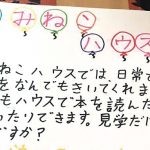 みねこ
ハウス
ねこハウスでは、日常で
をなんでもきいてくれます
もハウスで本を読んだ
ったりできます。見学だけ
ですか?